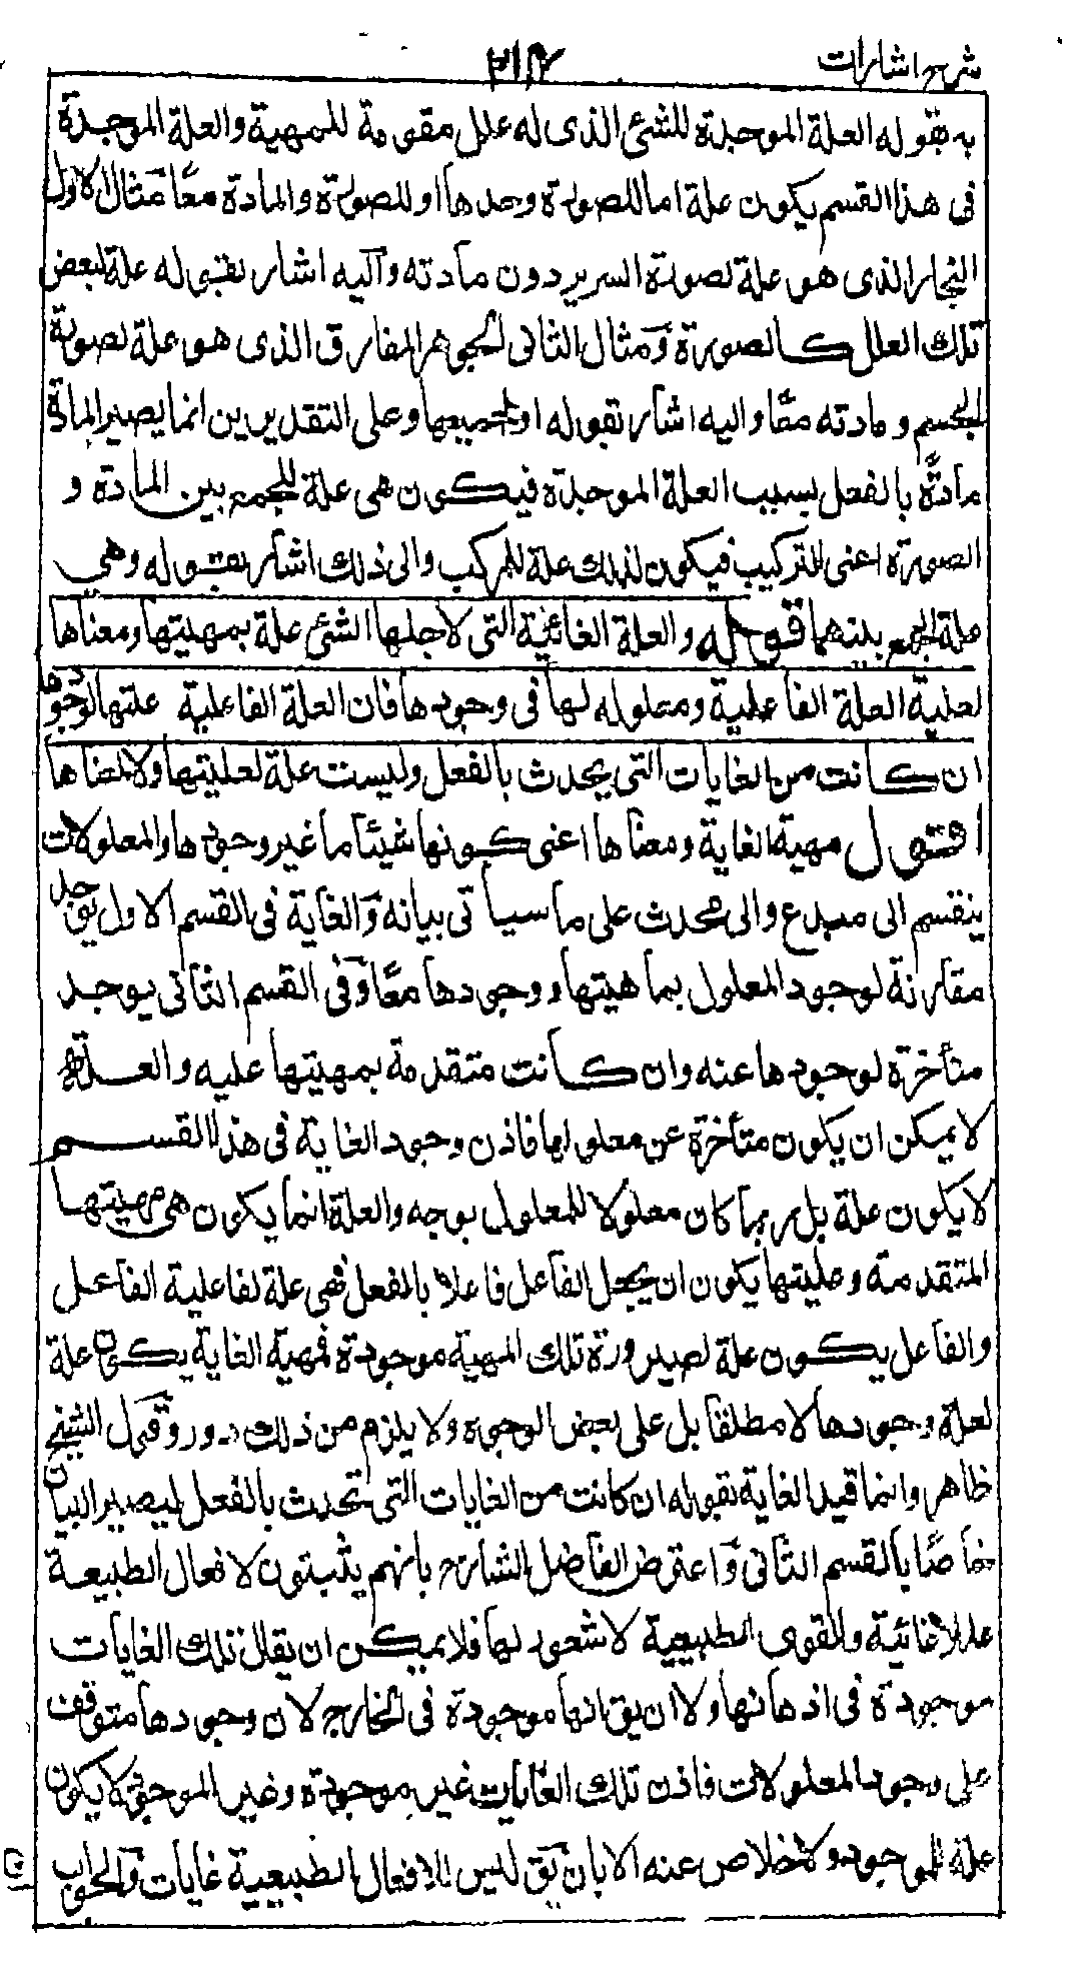 شرح اشارات
به بقوله العلة الموجدة للشئ الذى له علل مقومة للمهية والعلة الموجدة
فى هذا القسم يكون علة اما للصورة وحدها او للصورة والمادة معًا مثال الاول
النجار الذى هو علة لصورة السرير دون مادته وآليه اشار بقوله علة لبعض
تلك العلل كالصورة ومثال الثانى الجوهر المفارق الذى هو علة لصورة
الجسم ومادته معًا واليه اشار بقوله او لجميعها وعلى التقديرين انما يصير المادة
مادّة بالفعل بسبب العلة الموجدة فيكون هى علة للجمع بين المادة و
الصورة اعنى للتركيب فيكون لذلك علة للمركب والى ذلك اشار بقوله وهى
علة الجمع بينهما قوله والعلة الغائية التى لاجلها الشئ علة بمهيتها ومعناها
لعلية العلة الفاعلية ومعلوله لها فى وجودها فان العلة الفاعلية علتها لوجودها
ان كانت من الغايات التى يحدث بالفعل وليست علة لعليتها ولا لمعناها
اقول مهية الغاية ومعناها اعنى كونها شيئا ما غير وجودها والمعلولات
ينقسم الى مبدع والى محدث على ما سيأتى بيانه والغاية فى القسم الاول يوجد
مقارنة لوجود المعلول بماهيتها ووجودها معًا وفى القسم الثانى يوجد
متأخرة لوجودها عنه وان كانت متقدمة بمهيتها عليه والعلة
لا يمكن ان يكون متأخرة عن معلولها فاذن وجود الغاية فى هذا القسم
لا يكون علة بل ربما كان معلولا للمعلول بوجه والعلة انما يكون هى مهيتها
المتقدمة وعليتها يكون ان يجعل الفاعل فاعلا بالفعل فهى علة لفاعلية الفاعل
والفاعل يكون علة لصيرورة تلك المهية موجودة فمهية الغاية يكون علة
لعلة وجودها لا مطلقا بل على بعض الوجوه ولا يلزم من ذلك دور وقول الشيخ
ظاهر وانما قيد الغاية بقوله ان كانت من الغايات التى تحدث بالفعل ليصير البيان
خاصًا بالقسم الثانى واعترض الفاضل الشارح بانهم يثبتون لافعال الطبيعة
عللا غائية والقوى الطبيعية لا شعور لها فلا يمكن ان يقال تلك الغايات
موجودة فى اذهانها ولا ان يق انها موجودة فى الخارج لان وجودها متوقف
على وجود المعلولات فاذن تلك الغايات غير موجودة وغير الموجود لا يكون
علة للموجود ولا خلاص عنه الا بان يق ليس للافعال الطبيعية غايات والجواب